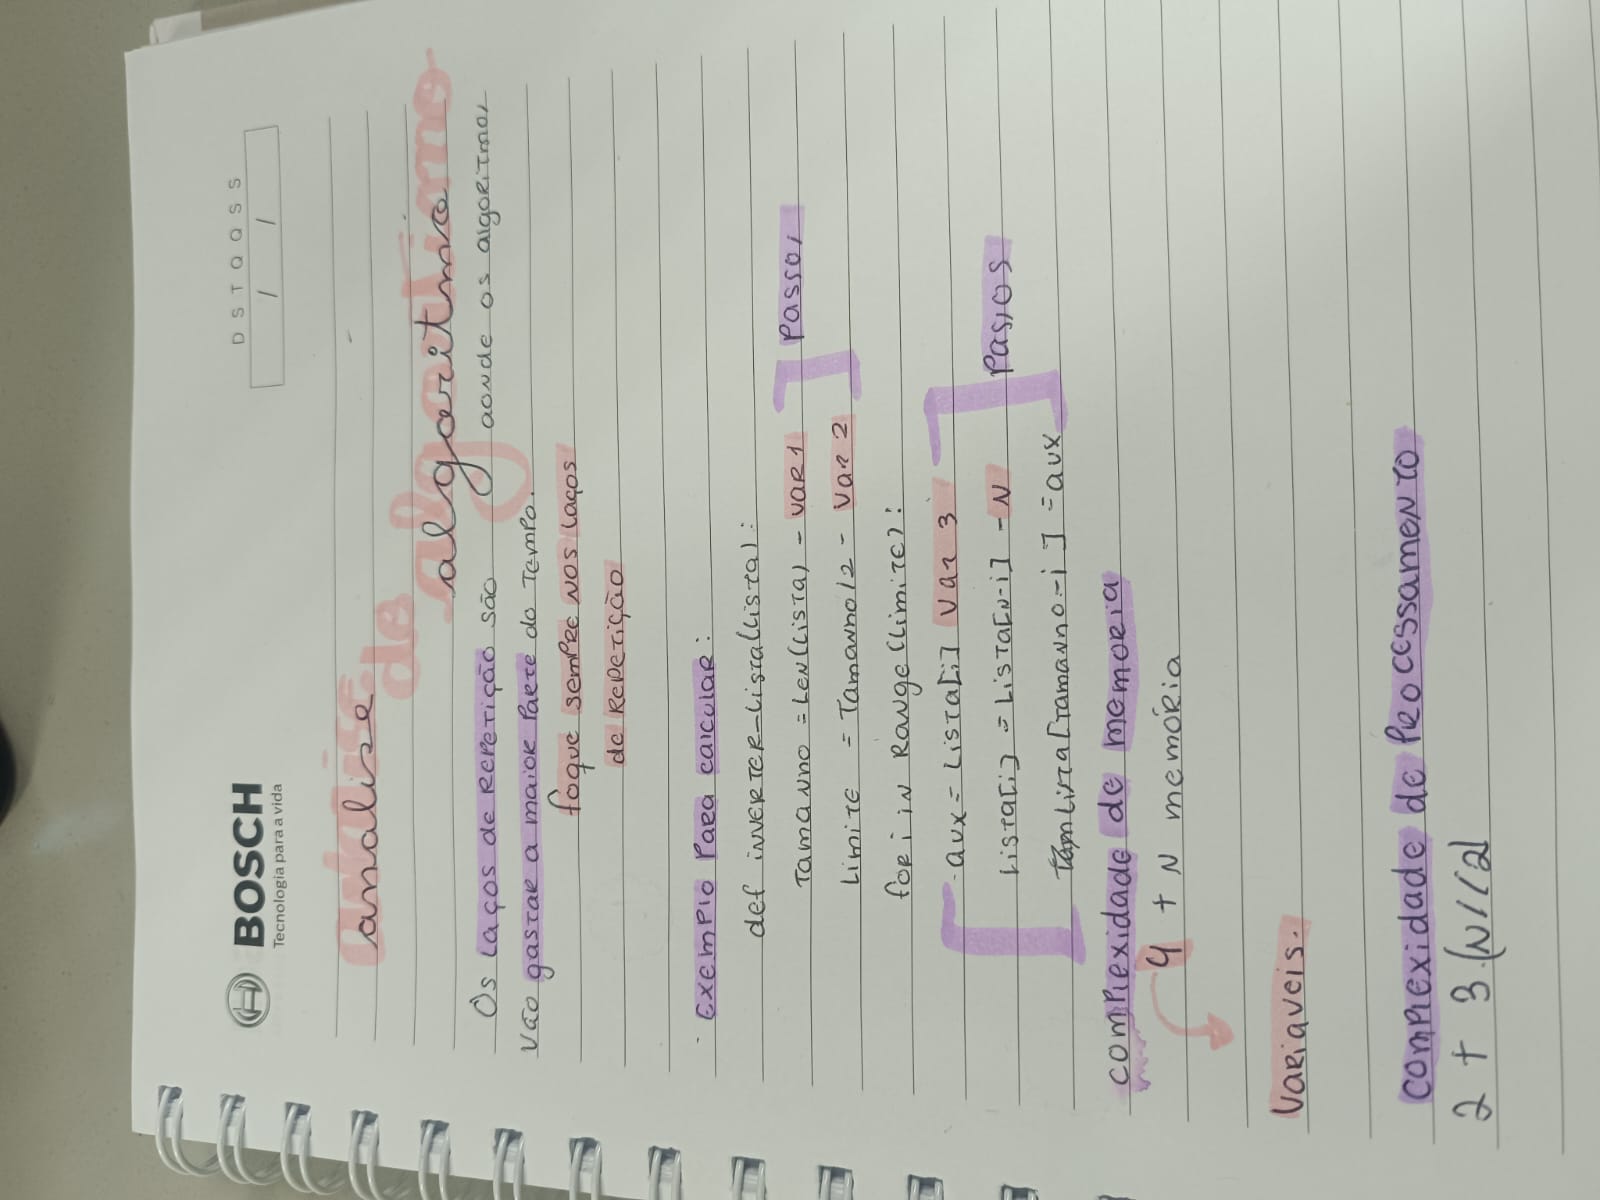 BOSCH
Tecnologia para a vida
D S T Q Q S S
/ /
analise
de
algoritmo
analise
algoritmo
Os laços de repetição são aonde os algoritmos
vão gastar a maior parte do tempo.
foque sempre nos laços
de repetição
exemplo para calcular:
def inverter_lista(lista):
tamanho = len(lista) - var 1
passos
limite = tamanho/2 - var 2
for i in range(limite):
aux = lista[i] var 3
lista[i] = lista[n-i] - N
passos
lista[tamanho-i] = aux
complexidade de memoria
4 + N memória
variaveis.
complexidade de processamento
2 + 3·(N/2)